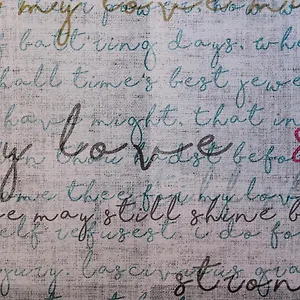 my
batt'ring days. wh
hall time's best jewe
have might. that in
y love
thou hadst befo
me thee my lov
e may still shine b
elf refusest. i do fo
jury. lascivious gra
stron